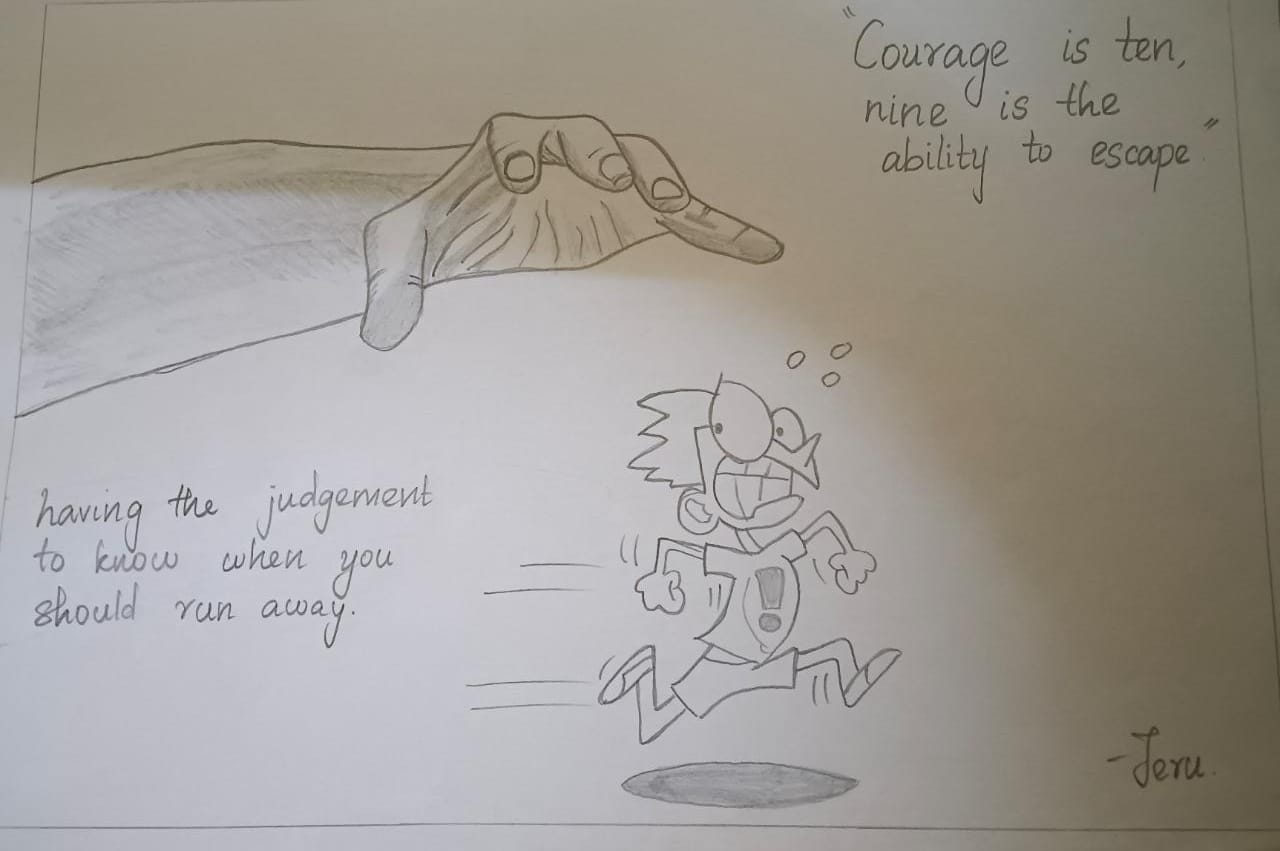 "Courage is ten,
nine is the
ability to escape"
having the judgement
to know when you
should run away.
!
-Jeru.